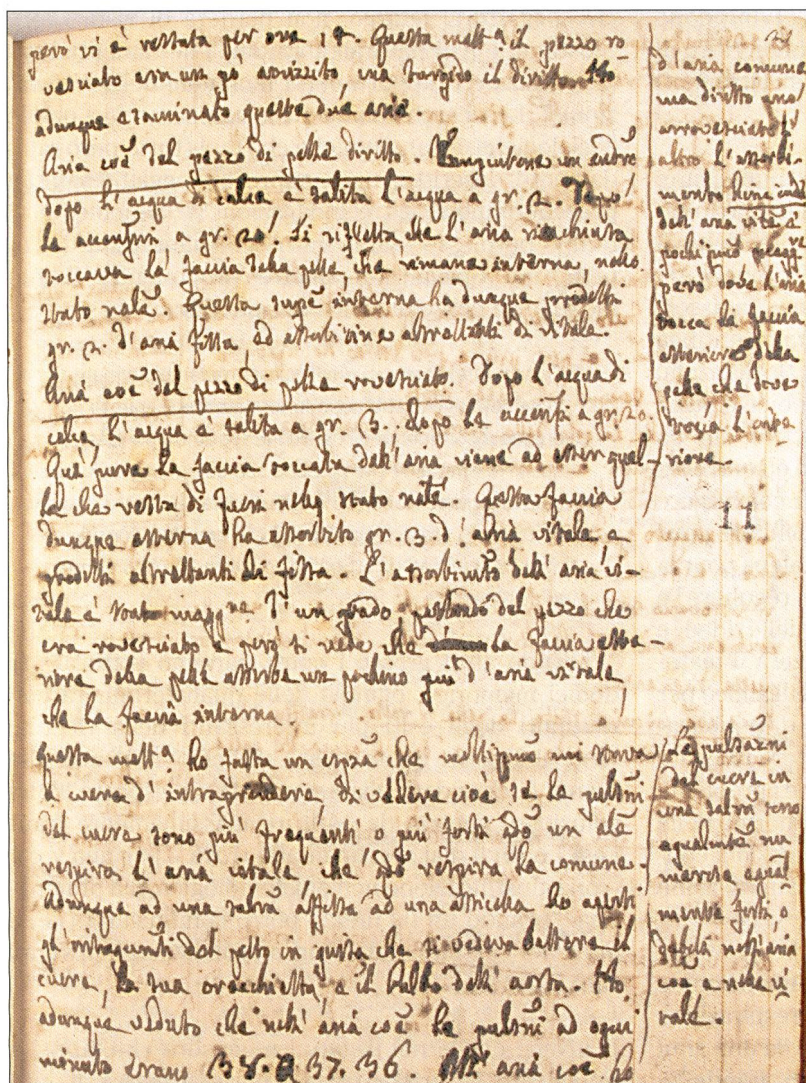 però vi è restata per ore 18. Questa matt.ª il pezzo ro-
vesciato era un po' avvizzito, ma turgido il diritto. Ho
adunque esaminato queste due arie.
Aria coẽ del pezzo di pelle diritto. un endre
dopo l'acqua di calce è salita l'acqua a gr. 2. Dopo
la accensi a gr. 20. Si rifletta che l'aria rinchiusa
toccava la faccia della pelle, che rimane interna, nello
stato nalẽ. Questa supẽ interna ha dunque prodotti
gr. 2. d'aria fissa, ed assorbitine altrettanti di vitale.
Aria coẽ del pezzo di pelle rovesciato. Dopo l'acqua di
calce, l'acqua è salita a gr. 3. dopo la accensi a gr. 20.
Quì pure la faccia toccata dall'aria viene ad esser quel-
la che resta di fuori nello stato nalẽ. Questa faccia
dunque esterna ha assorbito gr. 3. d'aria vitale e
prodotti altrettanti di fissa. L'assorbimẽto dell'aria vi-
tale è stato magg.re d'un grado parlando del pezzo che
era rovesciato e però si vede che la faccia este-
riore della pelle assorbe un pochino più d'aria vitale
che la faccia interna.
Questa matt.ª ho fatta un espzã che moltissimo mi stava
a cuore d'intraprendere, di vedere cioè se le pulsñi
del cuore sono più frequenti o più forti qdo un alẽ
respira l'aria vitale, che qdo respira la comune.
Adunque ad una salrã affissa ad una assicella ho aperti
gl'integumenti del petto in guisa che si vedeva battere il
cuore, la sua orecchietta e il bulbo dell'aorta. Ho
adunque veduto che nell'aria coẽ le pulsñi ad ogni
minuto erano 38. 37. 36. Nell'aria coẽ ho
d'aria comune
ma diritto uno
arrovesciato l'
altro l'assorbi-
mento
dell'aria vitẽ è
pochissimo magg.re
però dove l'aria
tocca la faccia
esteriore della
pelle che dove
tocca l'inte-
riore.
11
Le pulsazñi
del cuore in
una salrã sono
egualmtẽ nu-
merose egual
mente forti o
deboli nell'aria
coẽ e nella vi
tale.